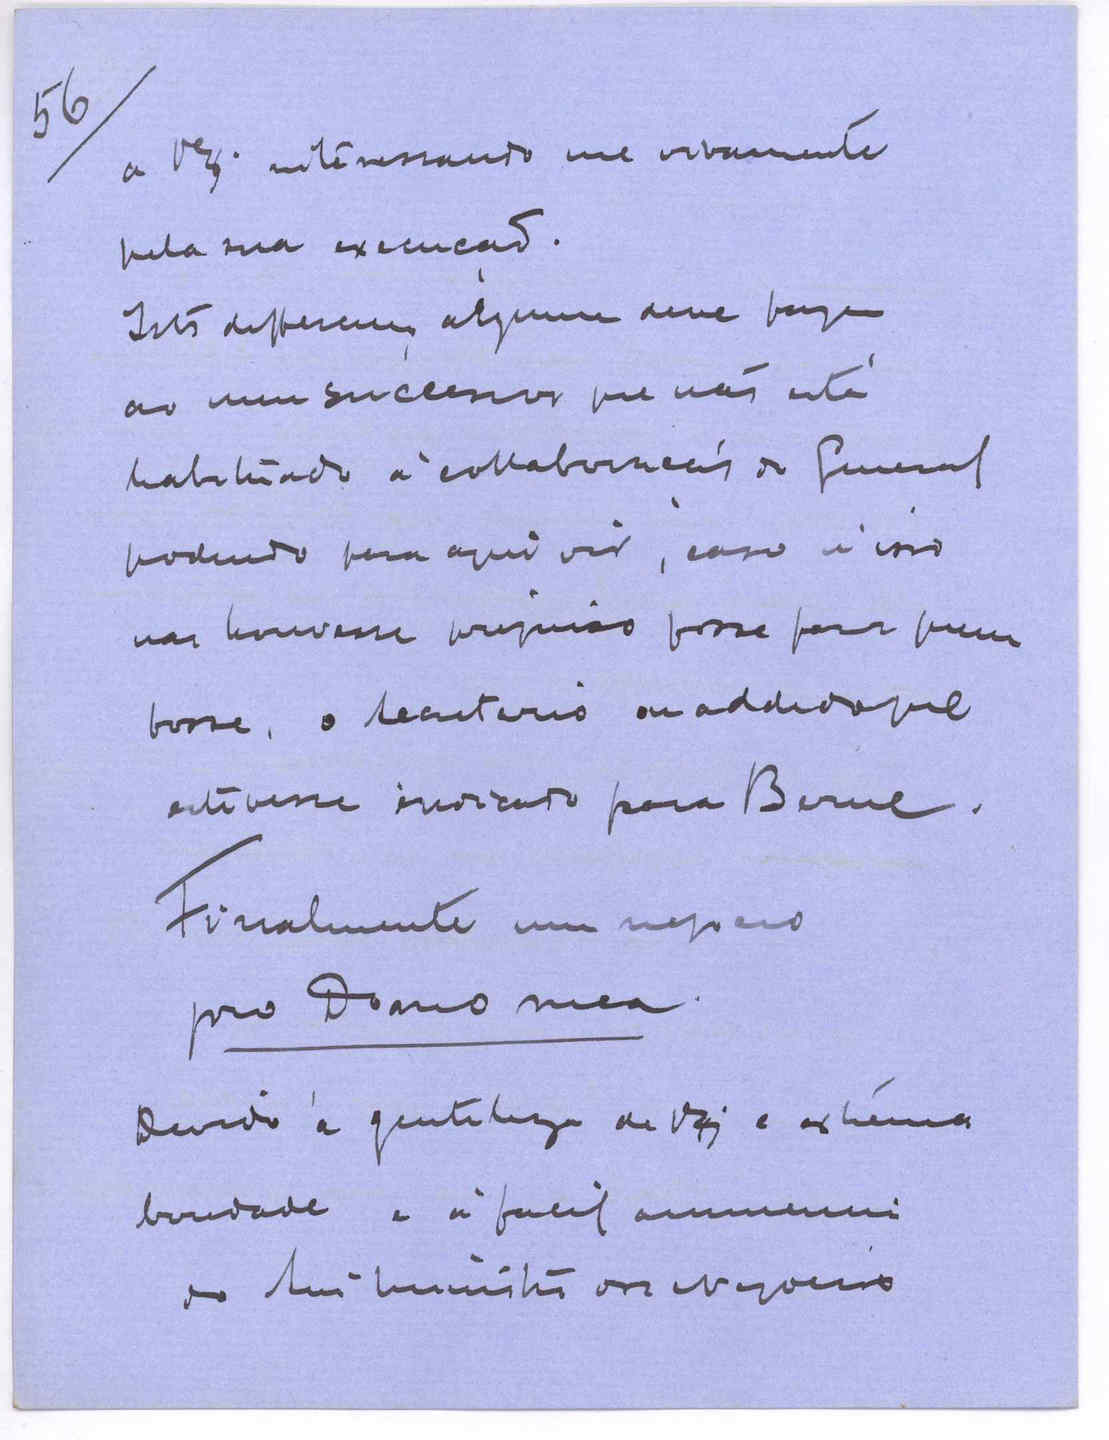 56
a V. Exª. interessando me vivamente
pela sua execução.
Isto differença alguma deve fazer
ao meu successor que não está
habituado á collaboração do General
podendo para aqui vir, caso n'isso
não houvesse prejuiso fosse para quem
fosse, o secretario ou addido que
estivesse indicado para Berne.
Finalmente um negocio
pro Domo mea.
Devido á gentileza de V. Exª e extréma
bondade e á facil
do Snr Ministro dos Negocios